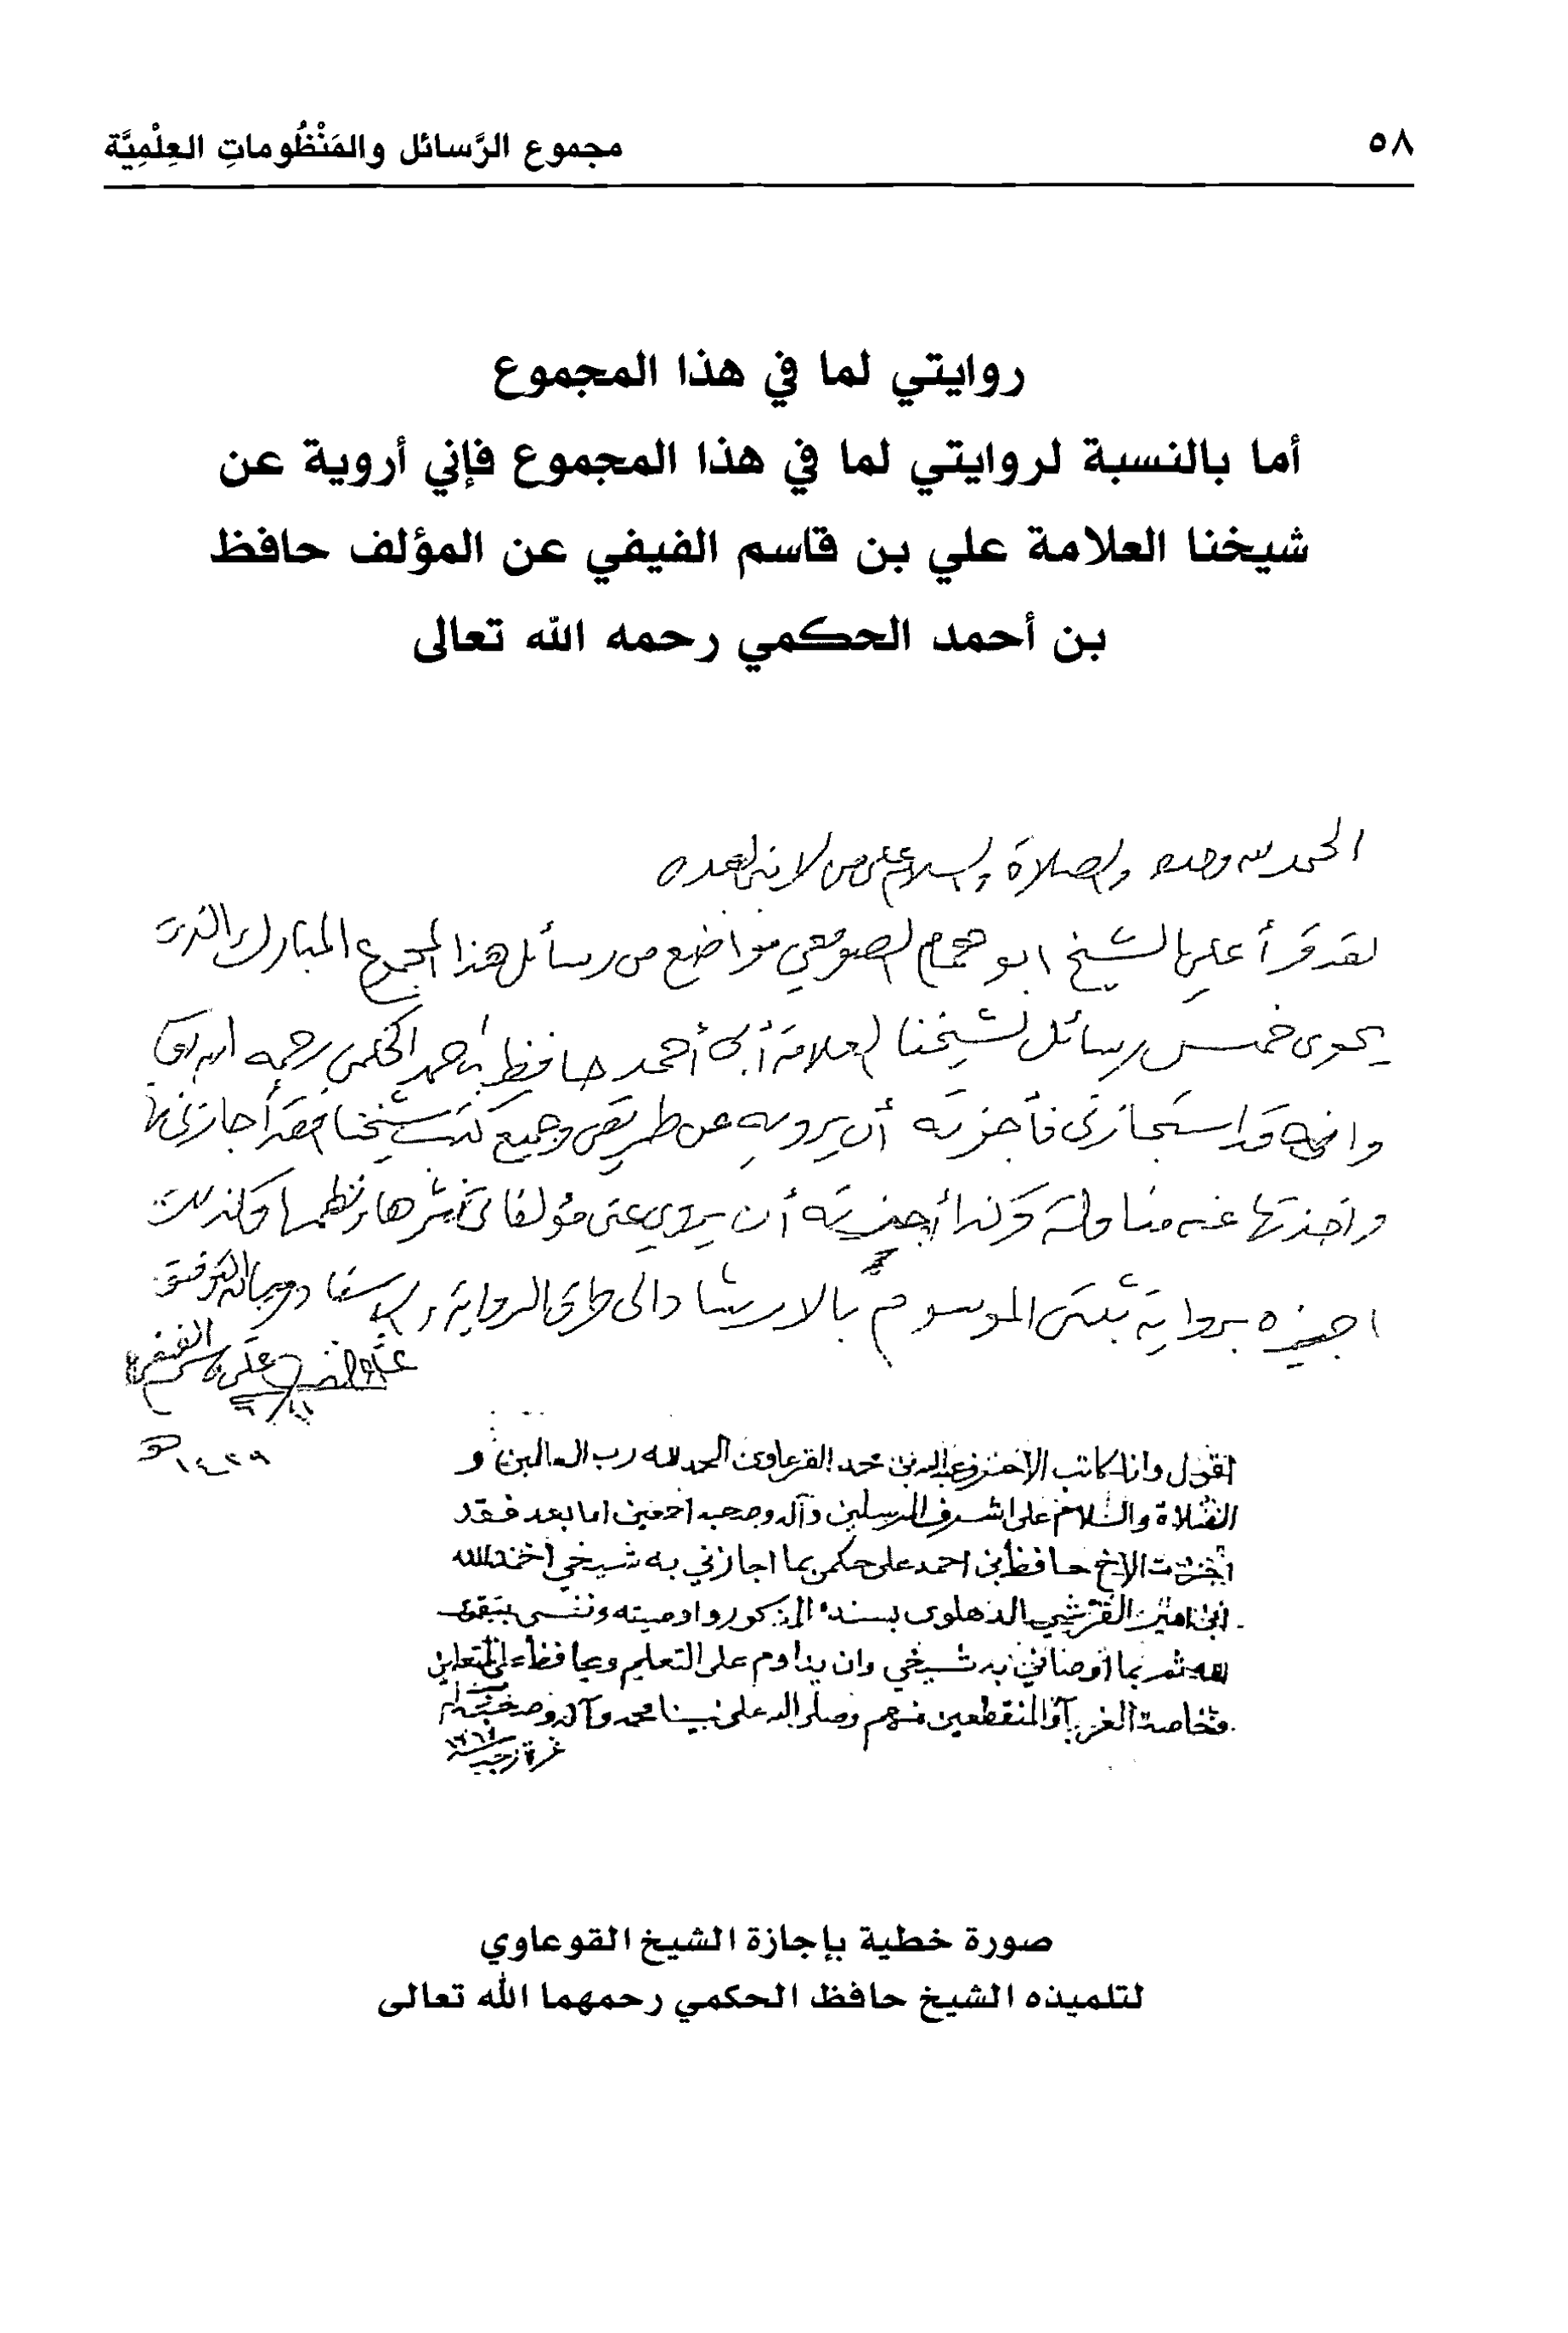 مجموع الرَّسائل والمَنْظُوماتِ العِلْمِيَّة
٥٨
روايتي لما في هذا المجموع
أما بالنسبة لروايتي لما في هذا المجموع فإني أروية عن
شيخنا العلامة علي بن قاسم الفيفي عن المؤلف حافظ
بن أحمد الحكمي رحمه الله تعالى
الحمد لله وحده والصلاة والسلام على من لا نبي بعده
لقد قرأ علي الشيخ ابو همام الصومعي مواضع من رسائل هذا المجموع المبارك الذي
يحوى خمس رسائل لشيخنا العلامة أبي أحمد حافظ بن احمد الحكمي رحمه الله
وانه قد استجازني فأجزته أن يرويه عن طريقي وجميع كتب شيخنا فقد أجازني بها
واخذتها عنه مناولة وكذا أجزته أن يروي عني مؤلفاتي نثرها ونظمها وكذلك
اجيزه برواية ثبتي الموسوم بالارشاد الى طرق الرواية والاسناد وبالله التوفيق
علي بن قاسم الفيفي
١٤٢٩ هـ
اقول وانا كاتب الاحرف عبدالله بن محمد القرعاوي الحمد لله رب العالمين و
الصلاة والسلام على اشرف المرسلين وآله وصحبه اجمعين اما بعد فقد
أجزت الاخ حافظ بن احمد على حكمي بما اجازني به شيخي احمدالله
ابن امير القرشي الدهلوي بسنده المذكور واوصيته ونفسي بتقوى
الله ثم بما أوصاني به شيخي وان يداوم على التعليم ويحافظ على المتعلمين
وخاصة الغرباء والمنقطعين منهم وصلى الله على نبينا محمد وآله وصحبه وسلم
غرة رجب
صورة خطية بإجازة الشيخ القوعاوي
لتلميذه الشيخ حافظ الحكمي رحمهما الله تعالى